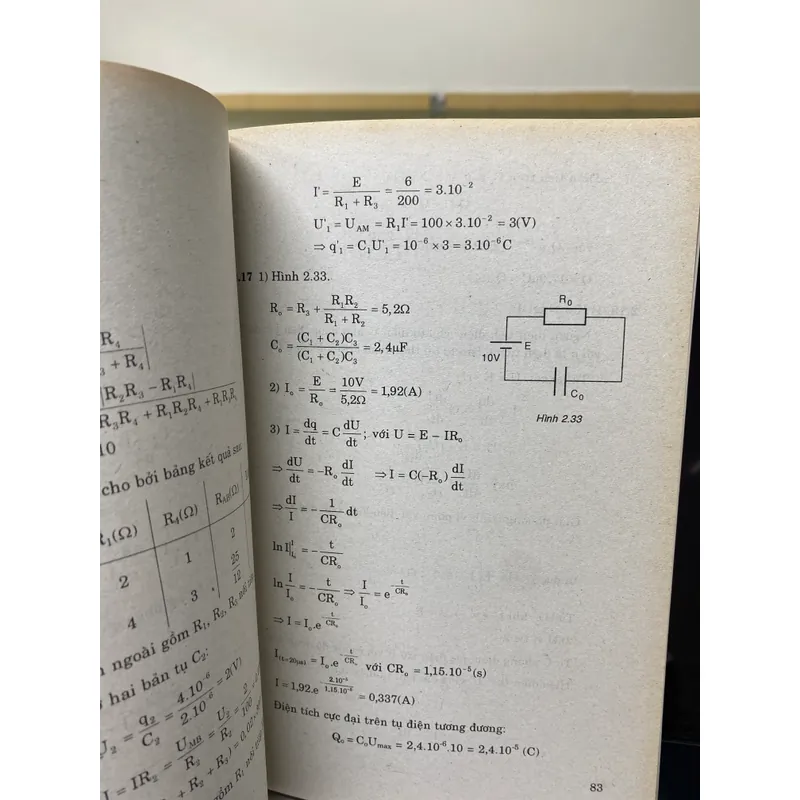 R₄
₃ + R₄|
|R₂R₃ − R₁R₄|
R₃R₄ + R₁R₂R₄ + R₁R₃R₄
10
cho bởi bảng kết quả sau
R₁(Ω) R₄(Ω) R_AB(Ω)
2 1 2
4 3 25/12
ngoài gồm R₁, R₂, R₃
hai bản tụ C₂:
U₂ = q₂/C₂ = 4.10⁻⁶/2.10⁻⁶ = 2(V)
I = IR₂ = U_MB/R₂ = U₂/R₂ = 2/100
+ R₂ + R₃) = 0,02
gồm R₁
I' = E/(R₁ + R₃) = 6/200 = 3.10⁻²
U'₁ = U_AM = R₁I' = 100 × 3.10⁻² = 3(V)
⇒ q'₁ = C₁U'₁ = 10⁻⁶ × 3 = 3.10⁻⁶C
.17 1) Hình 2.33.
R₀ = R₃ + R₁R₂/(R₁ + R₂) = 5,2Ω
C₀ = (C₁ + C₂)C₃/(C₁ + C₂)C₃ = 2,4μF
2) I₀ = E/R₀ = 10V/5,2Ω = 1,92(A)
3) I = dq/dt = C dU/dt; với U = E − IR₀
⇒ dU/dt = −R₀ dI/dt ⇒ I = C(−R₀) dI/dt
⇒ dI/I = − 1/CR₀ dt
ln I|ᴵ_I₀ = − t/CR₀
ln I/I₀ = − t/CR₀ ⇒ I/I₀ = e^(−t/CR₀)
⇒ I = I₀.e^(−t/CR₀)
I₍ₜ₌₂₀μₛ₎ = I₀.e^(−t/CR₀) với CR₀ = 1,15.10⁻⁵(s)
I = 1,92.e^(−2.10⁻⁵/1,15.10⁻⁵) = 0,337(A)
Điện tích cực đại trên tụ điện tương đương:
Q₀ = C₀U_max = 2,4.10⁻⁶.10 = 2,4.10⁻⁵ (C)
R₀
E
10V
C₀
Hình 2.33
83